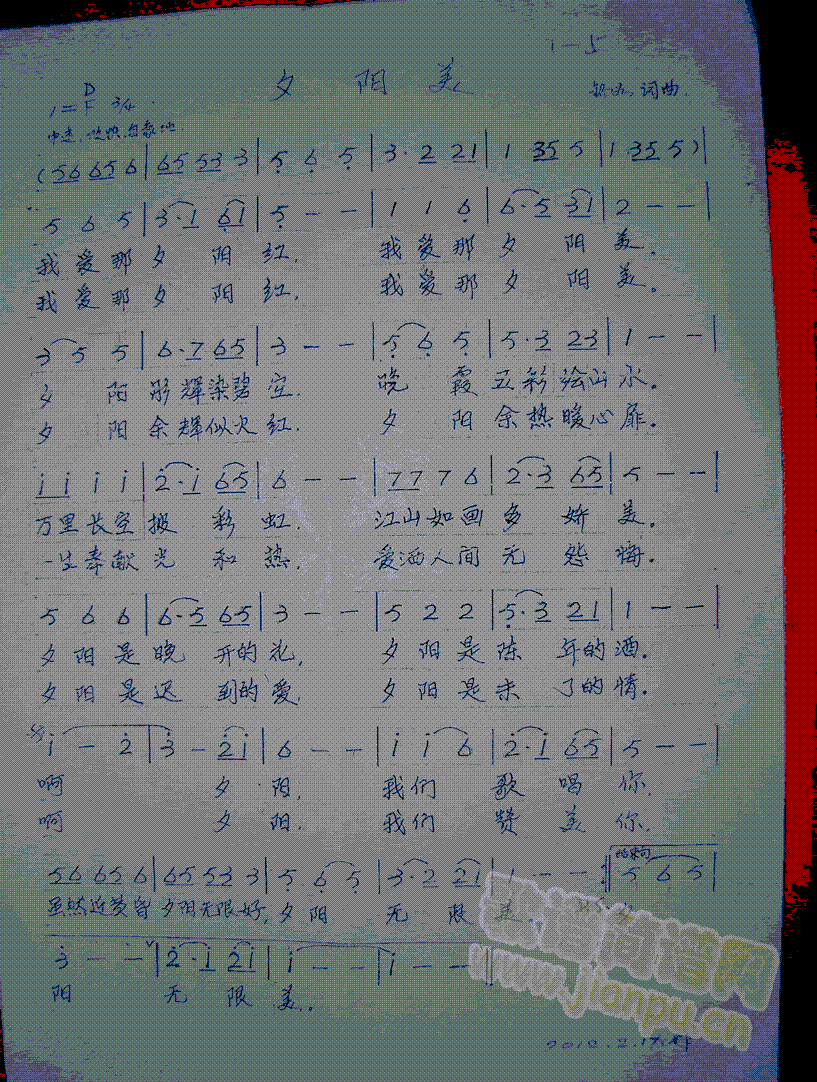 1-5
夕 阳 美
词曲.
1= D F 3/4
(56 65 6 | 65 53 3 | 5 6 5 | 3· 2 21 | 1 35 5 | 1 35 5)|
5 6 5 | 3·1 61 | 5 - - | 1 1 6 | 6·5 31 | 2 - - |
我 爱 那 夕 阳 红. 我 爱 那 夕 阳 美.
我 爱 那 夕 阳 红. 我 爱 那 夕 阳 美。
3 5 5 | 6·7 65 | 3 - - | 5 6 5 | 5·3 23 | 1 - - |
夕 阳 彤 辉 染 碧 空. 晚 霞 五 彩 绘 山 水.
夕 阳 余 辉 似 火 红. 夕 阳 余 热 暖 心 扉.
i i i i | 2·i 65 | 6 - - | 77 7 6 | 2·3 65 | 5 - - |
万里 长 空 披 彩 虹. 江山 如 画 多 娇 美.
一生 奉 献 光 和 热. 爱洒 人 间 无 怨 悔.
5 6 6 | 6·5 65 | 3 - - | 5 2 2 | 5·3 21 | 1 - - |
夕 阳 是 晚 开的 花, 夕 阳 是 陈 年的 酒.
夕 阳 是 迟 到的 爱, 夕 阳 是 未 了的 情.
i - 2 | 3 - 2i | 6 - - | i i 6 | 2·i 65 | 5 - - |
啊 夕 阳, 我 们 歌 唱 你.
啊 夕 阳. 我 们 赞 美 你.
56 65 6 | 65 53 3 | 5 6 5 | 3·2 21 | 1 - - :‖ 结束句 5 6 5 |
虽然近黄昏 夕阳无限好, 夕 阳 无 限 美. 夕
3 - - | 2·i 2i | i - - | i - - ‖
阳 无 限 美.
歌谱简谱网
www.jianpu.cn
2012.2.17